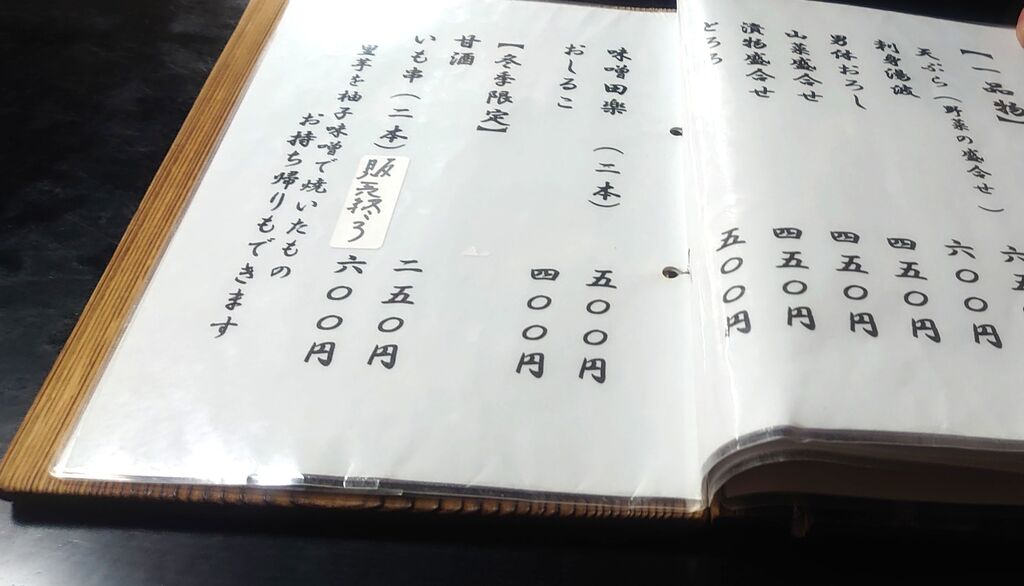 【一品物】
天ぷら(野菜の盛合せ) 六五
刺身湯波 六〇〇円
男体おろし 四五〇円
山菜盛合せ 四五〇円
漬物盛合せ 四五〇円
とろろ 五〇〇円
味噌田楽 (二本) 五〇〇円
おしるこ 四〇〇円
【冬季限定】
甘酒 二五〇円
いも串(二本) 販売終了 六〇〇円
里芋を柚子味噌で焼いたもの
お持ち帰りもできます